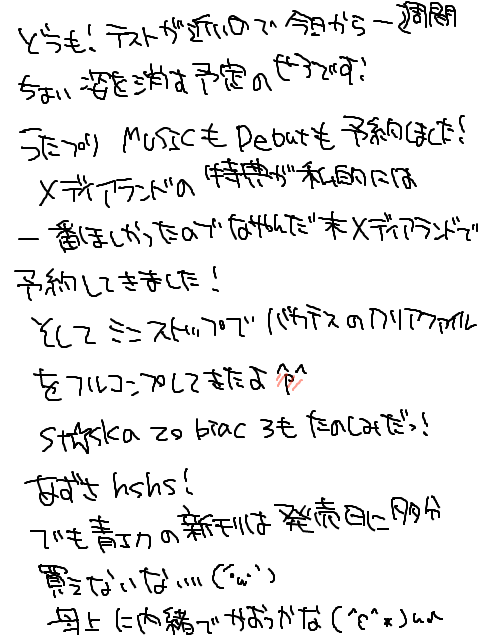 どうも!テストが近いので今日から一週間
ちょい姿を消す予定のぜろです!
うたプリMUSICもDebutも予約しました!
メディアランドの特典が私的には
一番ほしかったのでなやんだ末メディアランドで
予約してきました!
そしてミニストップでバカテスのクリアファイル
をフルコンプしてきたよ^p^
st☆ska zo biac 3もたのしみだっ!
あずさhshs!
でも青エクの新刊は発売日に多分
買えないな…(´・ω・`)
母上に内緒でかおっかな(^ε^*)